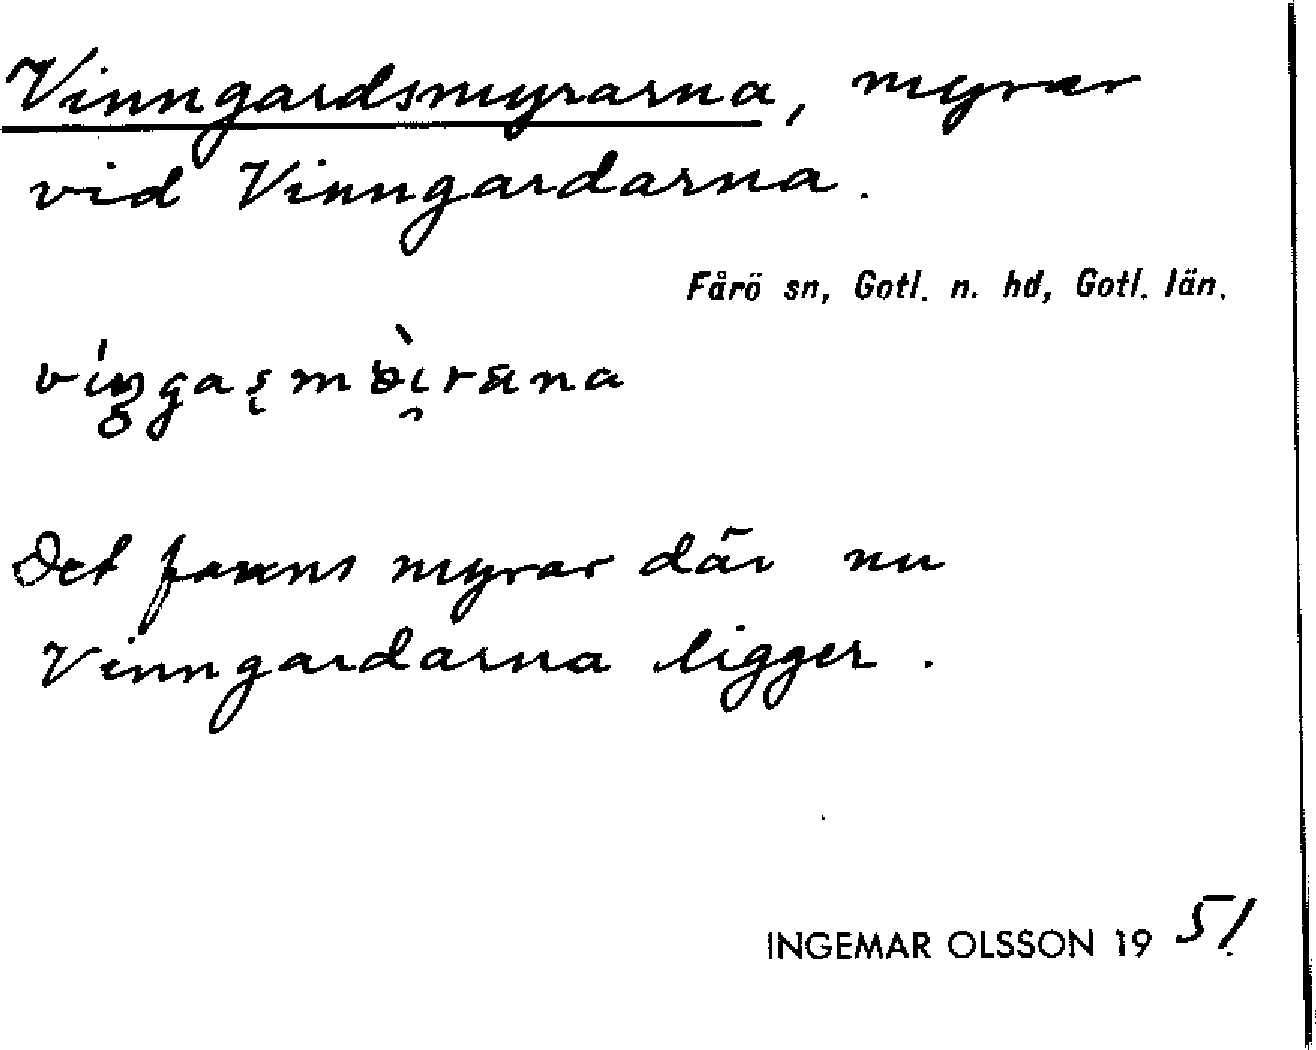 Vinngardsmyrarna, myrar
vid Vinngardarna.
Fårö sn, Gotl. n. hd, Gotl. län.
Det fanns myrar där nu
Vinngardarna ligger.
INGEMAR OLSSON 1951